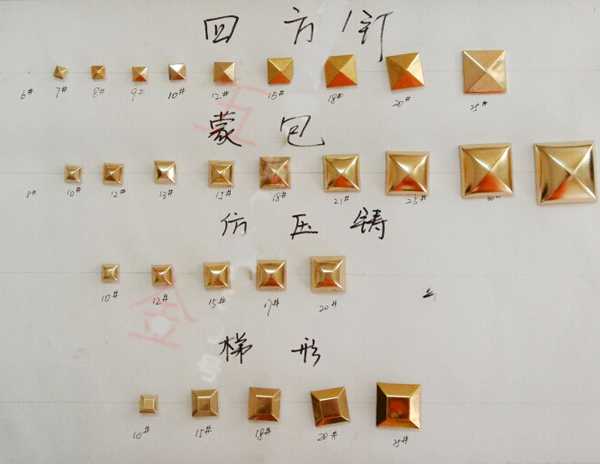 四方钉
6# 7# 8# 9# 10# 12# 15# 18# 20# 25#
蒙包
8# 10# 12# 13# 15# 18# 21# 25# 30#
仿压铸
10# 12# 15# 17# 20#
五金
梯形
10# 15# 18# 20# 25#